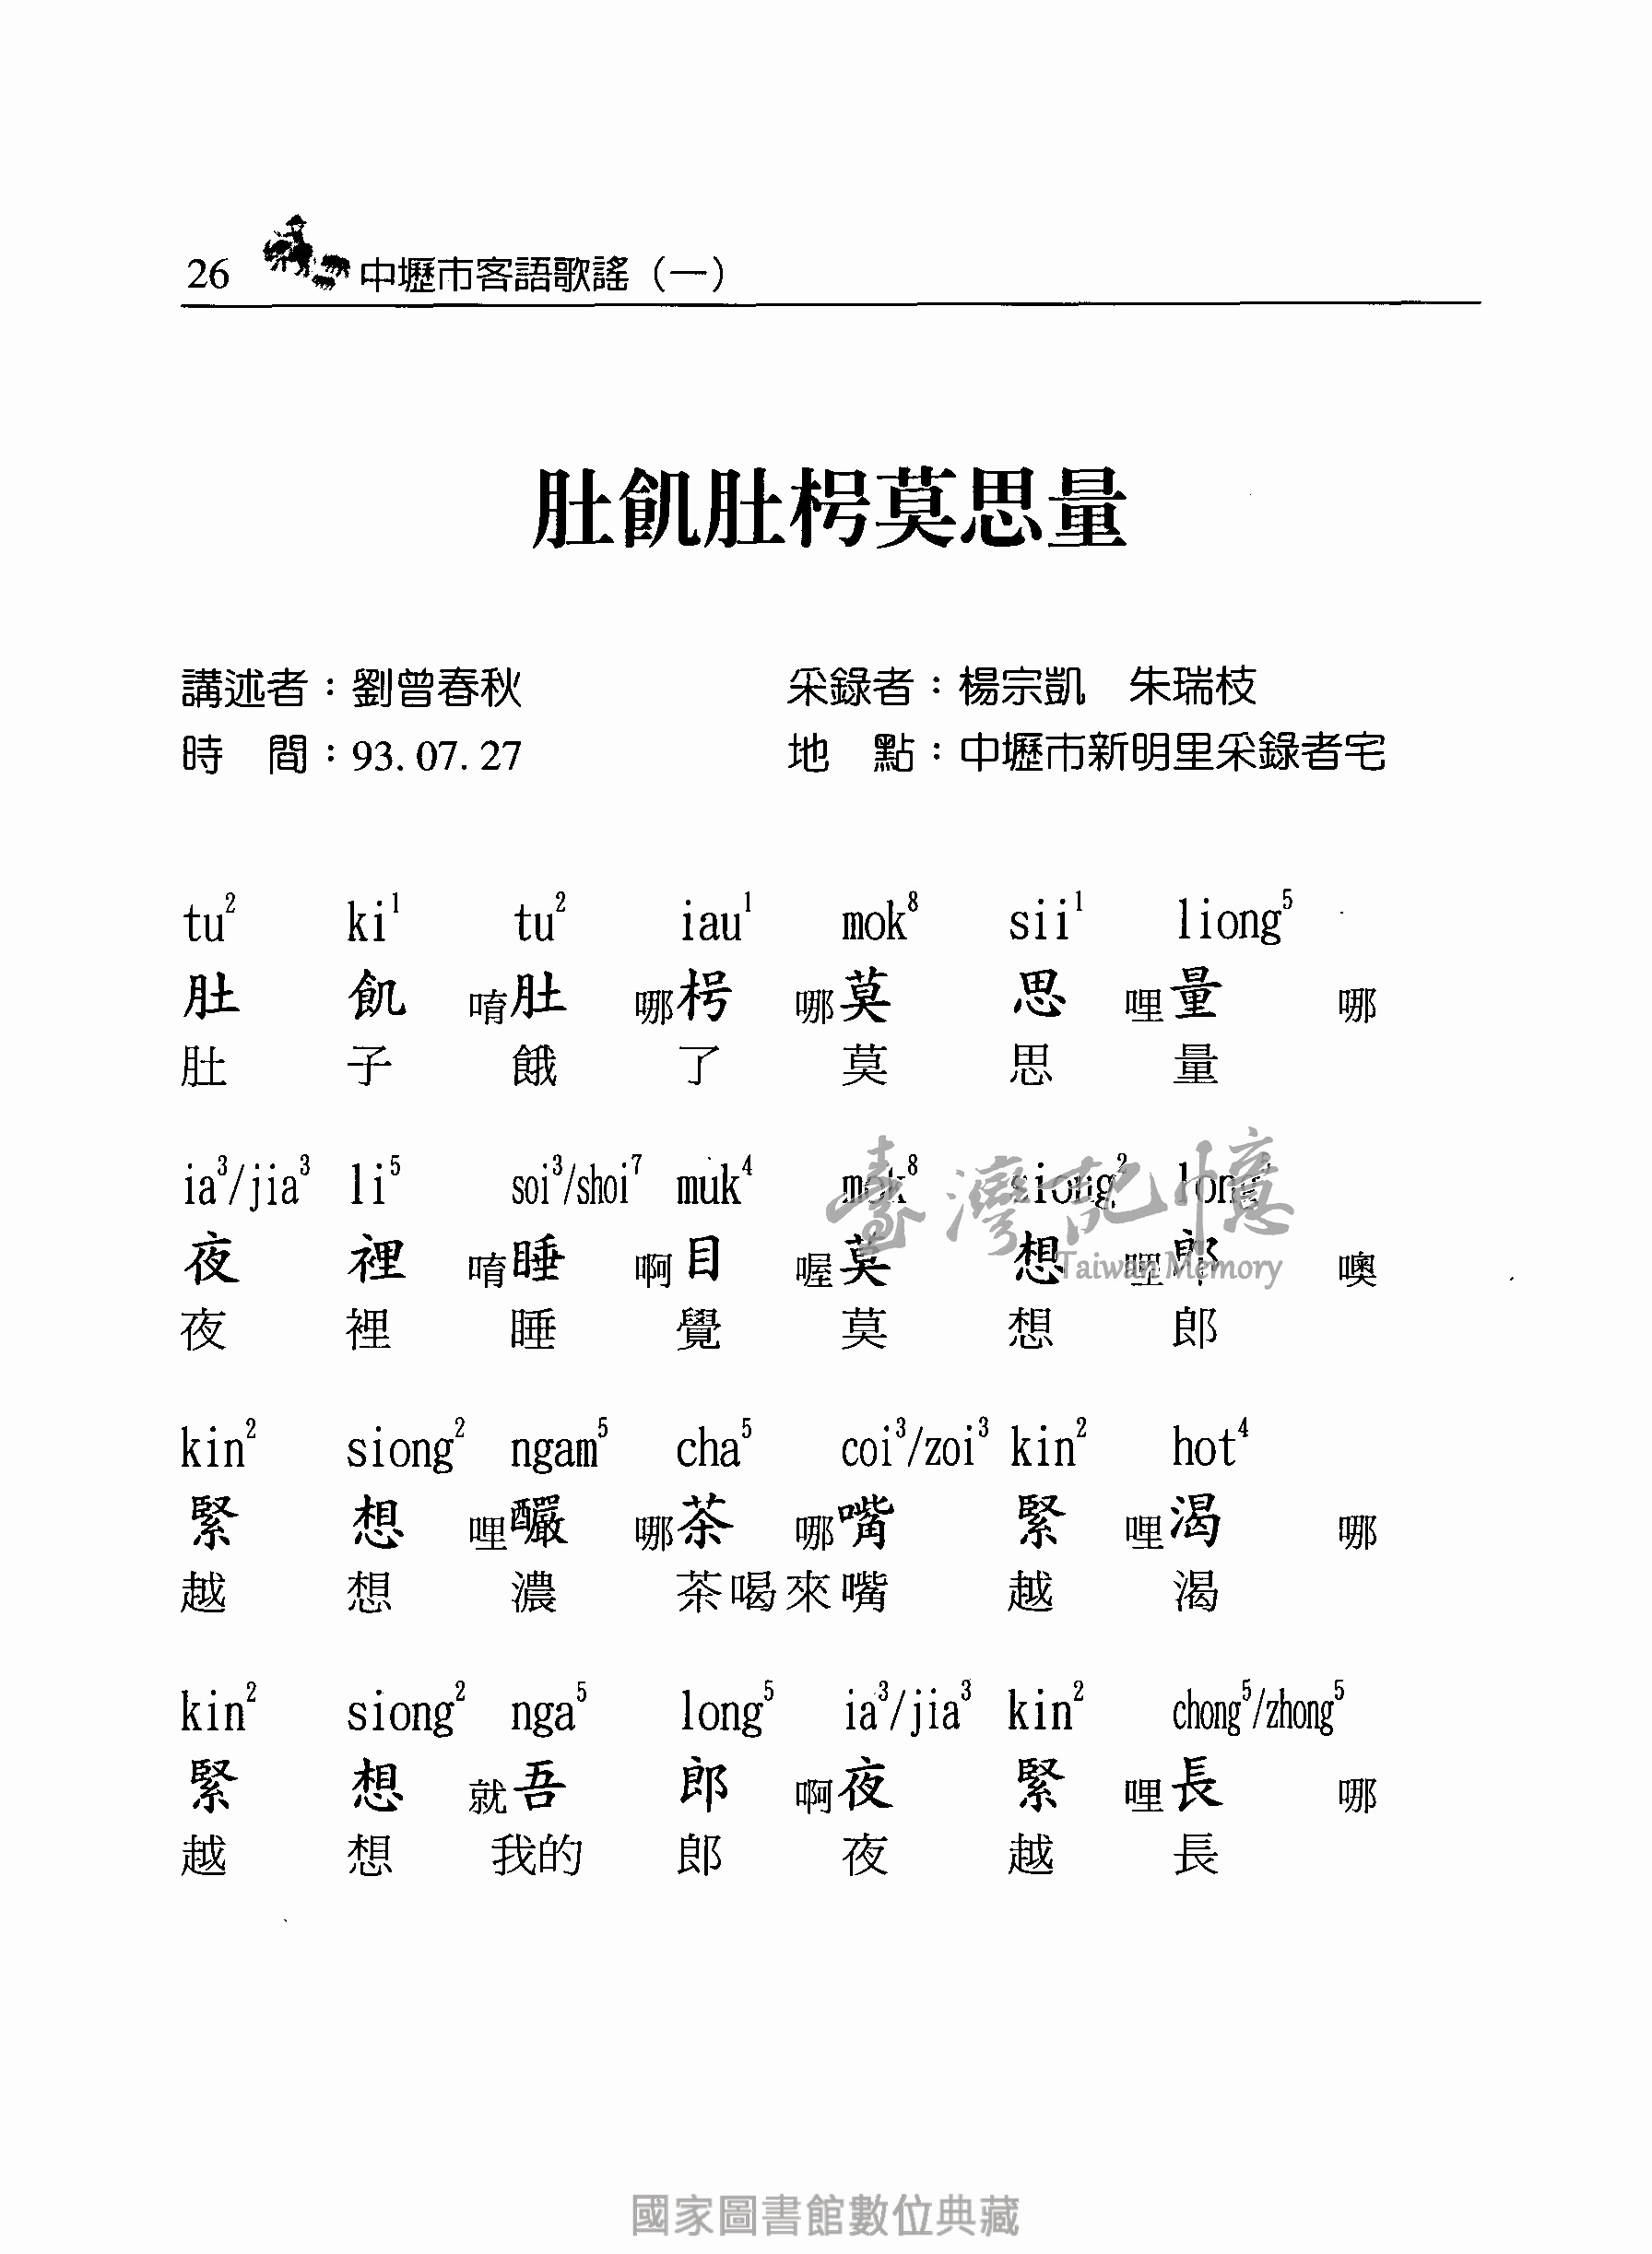 26 中壢市客語歌謠（一）
肚飢肚枵莫思量
講述者：劉曾春秋 采錄者：楊宗凱 朱瑞枝
時 間：93. 07. 27 地 點：中壢市新明里采錄者宅
tu² ki¹ tu² iau¹ mok⁸ sii¹ liong⁵
肚 飢 唷肚 哪枵 哪莫 思 哩量 哪
肚 子 餓 了 莫 思 量
ia³/jia³ li⁵ soi³/shoi⁷ muk⁴ mok⁸ siong² long⁵
夜 裡 唷睡 啊目 喔莫 想 哩郎 噢
夜 裡 睡 覺 莫 想 郎
臺灣記憶
Taiwan Memory
kin² siong² ngam⁵ cha⁵ coi³/zoi³ kin² hot⁴
緊 想 哩釅 哪茶 哪嘴 緊 哩渴 哪
越 想 濃 茶喝來嘴 越 渴
kin² siong² nga⁵ long⁵ ia³/jia³ kin² chong⁵/zhong⁵
緊 想 就吾 郎 啊夜 緊 哩長 哪
越 想 我的 郎 夜 越 長
國家圖書館數位典藏